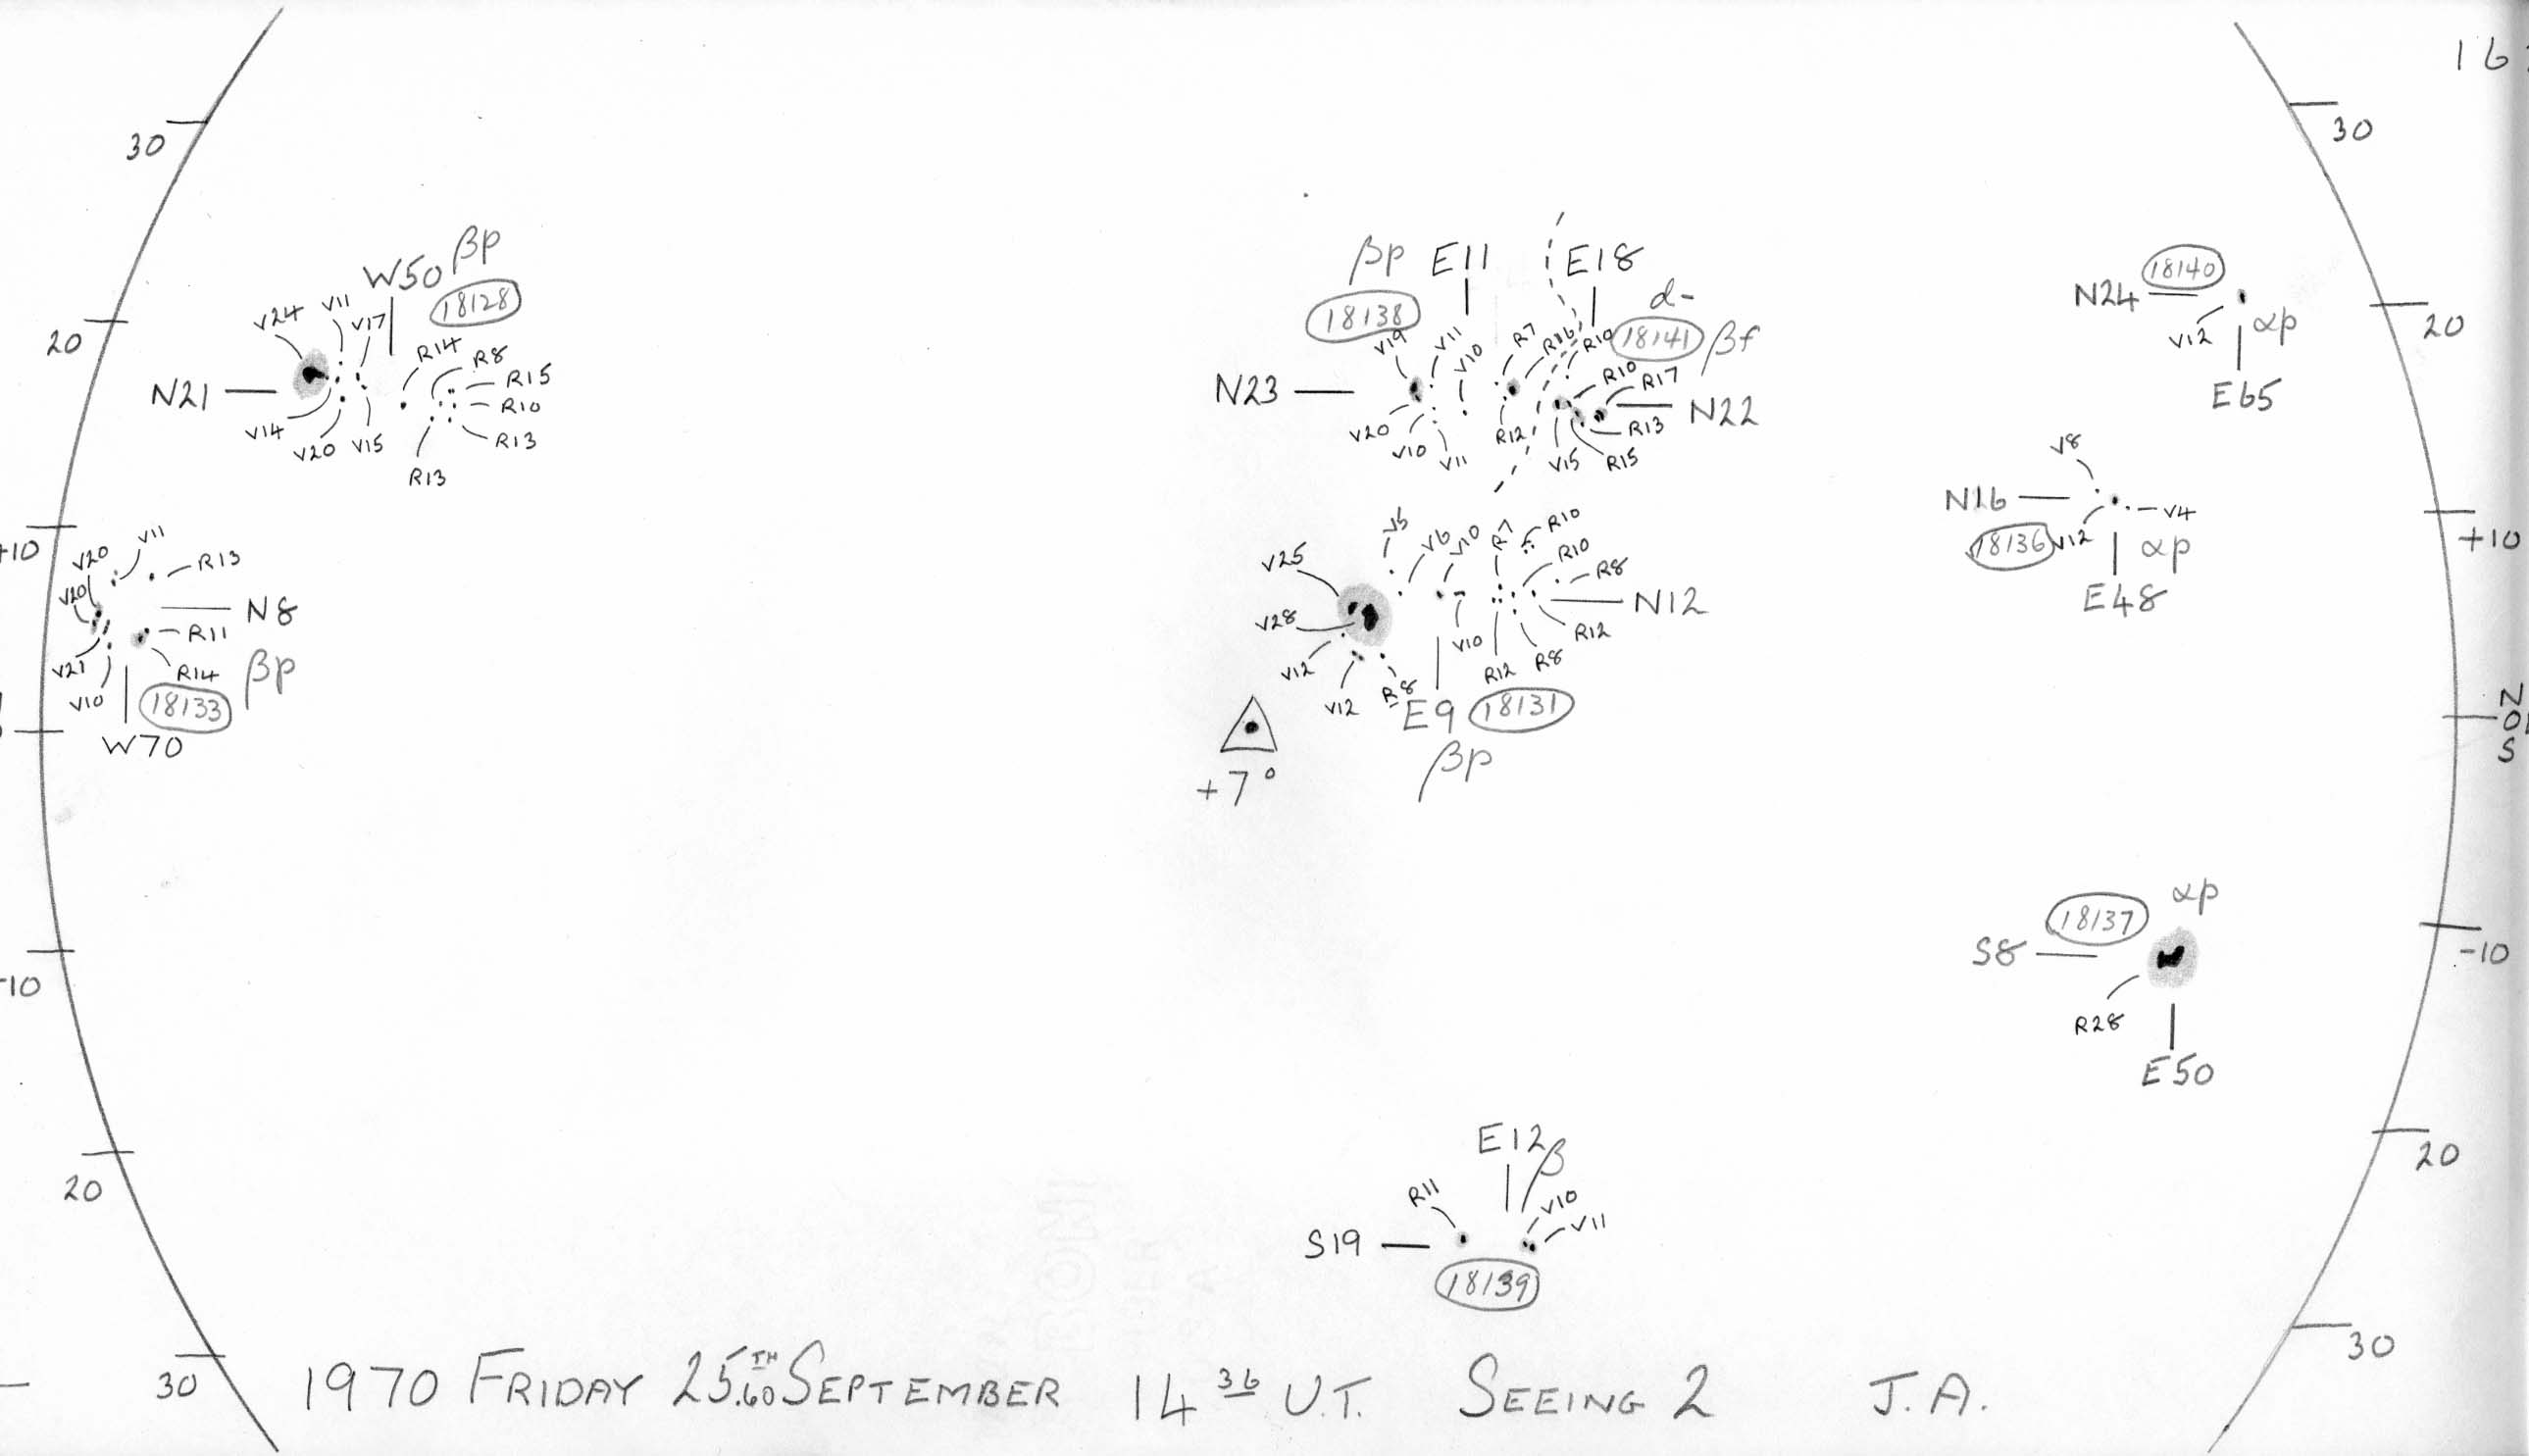 16
30
30
W50 βp
18128
V24 V11 V17
R14 R8
R15
R10
R13
R13
N21
V14 V20 V15
20
βp E11 E18
18138
d-
18141 βf
V19 V11 V10 R7 R16 R10
R10 R17
N23
N22
V20 V10 V11 R12 V15 R15 R13
N24 18140
V12 αp
E65
20
+10
V20 V11 R13
V20
N8
R11
V21 R14 βp
V10 18133
W70
V25 V6 V10 R7 R10
R10
R8
N12
V28
V12 V12 R8 V10 R12 R8 R12
E9 18131
βp
+7°
V8
N16
18136 V12 V4
αp
E48
+10
N
0
S
18137 αp
S8
R28
E50
-10
-10
20
20
E12 β
R11 V10
V11
S19
18139
30
30
1970 FRIDAY 25.60TH SEPTEMBER 14 36 U.T. SEEING 2 J.A.